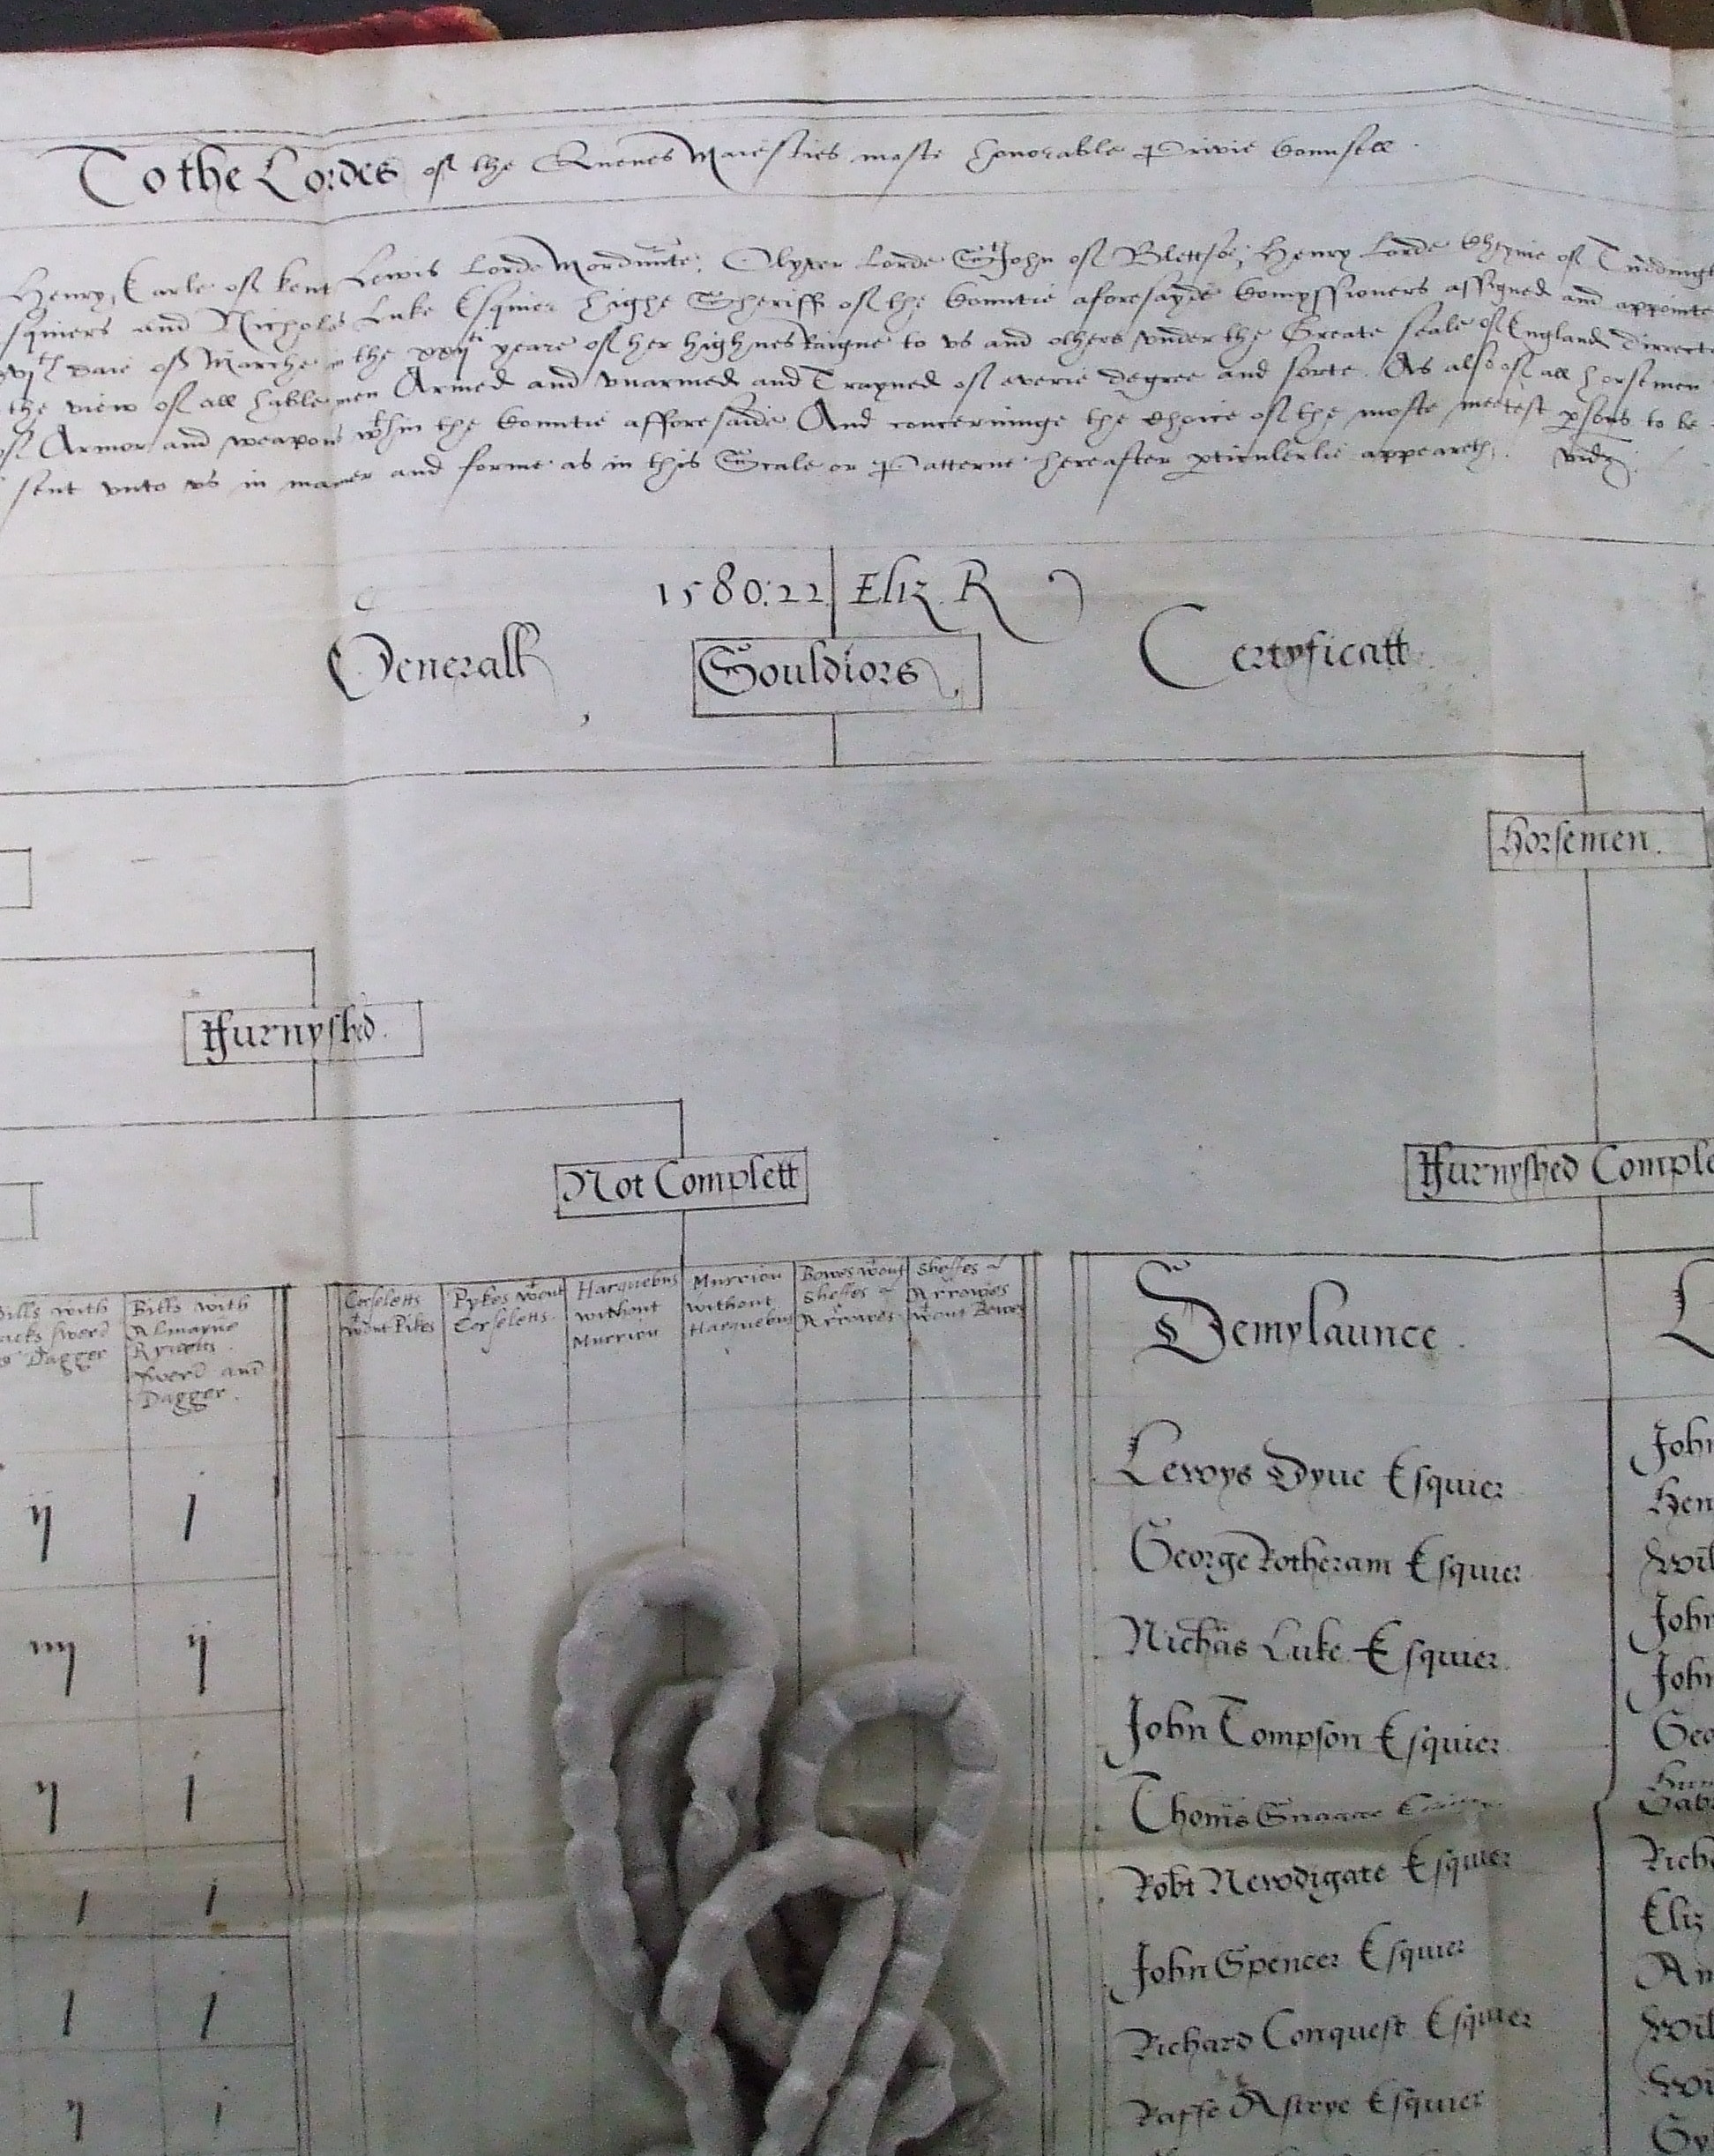 To the Lordes of the Quenes Maiesties moste honorable Privie Counsell.
Henry, Earle of Kent Lewis Lorde Mordunte, Olyver Lorde St John of Blettsoe, Henry Lorde Cheynie of Tuddingt
squiers and Nicholas Luke Esquier highe Sheriff of the Countie aforesayde Comyssioners assigned and appointe
vjth daie of Marche in the xxijti yeare of her highnes Raigne to vs and others vnder the Greate seale of England directe
the view of all hable men Armed and vnarmed and Trayned of everie degree and sorte. As also of all horsemen
of Armor and weapons wthin the Countie afforesaide And concerninge the choice of the moste meetest psons to be
sent vnto vs in maner and forme as in this Scale or Patterne hereafter pticulerlie appeareth. vidz
1580:22 Eliz. R
Generall Souldiors, Certyficatt
Horsemen.
Furnyshed.
Not Complett
Furnyshed Comple
Bills with
Jacks sword
Dagger
Bills with
Almayne
Ryvetts
sword and
Dagger.
Corseletts
wthout Pikes
Pykes wthout
Corseletts.
Harquebus
without
Murrion
Murrion
without
Harquebus
Bowes wthout
Sheffes of
Arrowes.
Sheffes of
Arrowes
wthout Bowes
Demylaunce.
Lewys Dyue Esquier
George Rotheram Esquier
Nichas Luke Esquier
John Tompson Esquier
Thoms Snagge Esquier
Robt Newdigate Esquier
John Spencer Esquier
Richard Conquest Esquier
Raffe Astrye Esquier
John
Hen
Wil
John
John
Geo
Hum
Gab
Rich
Eliz
An
Wil
Wi
Gy
ij j
iiij ij
ij j
j j
j j
ij j